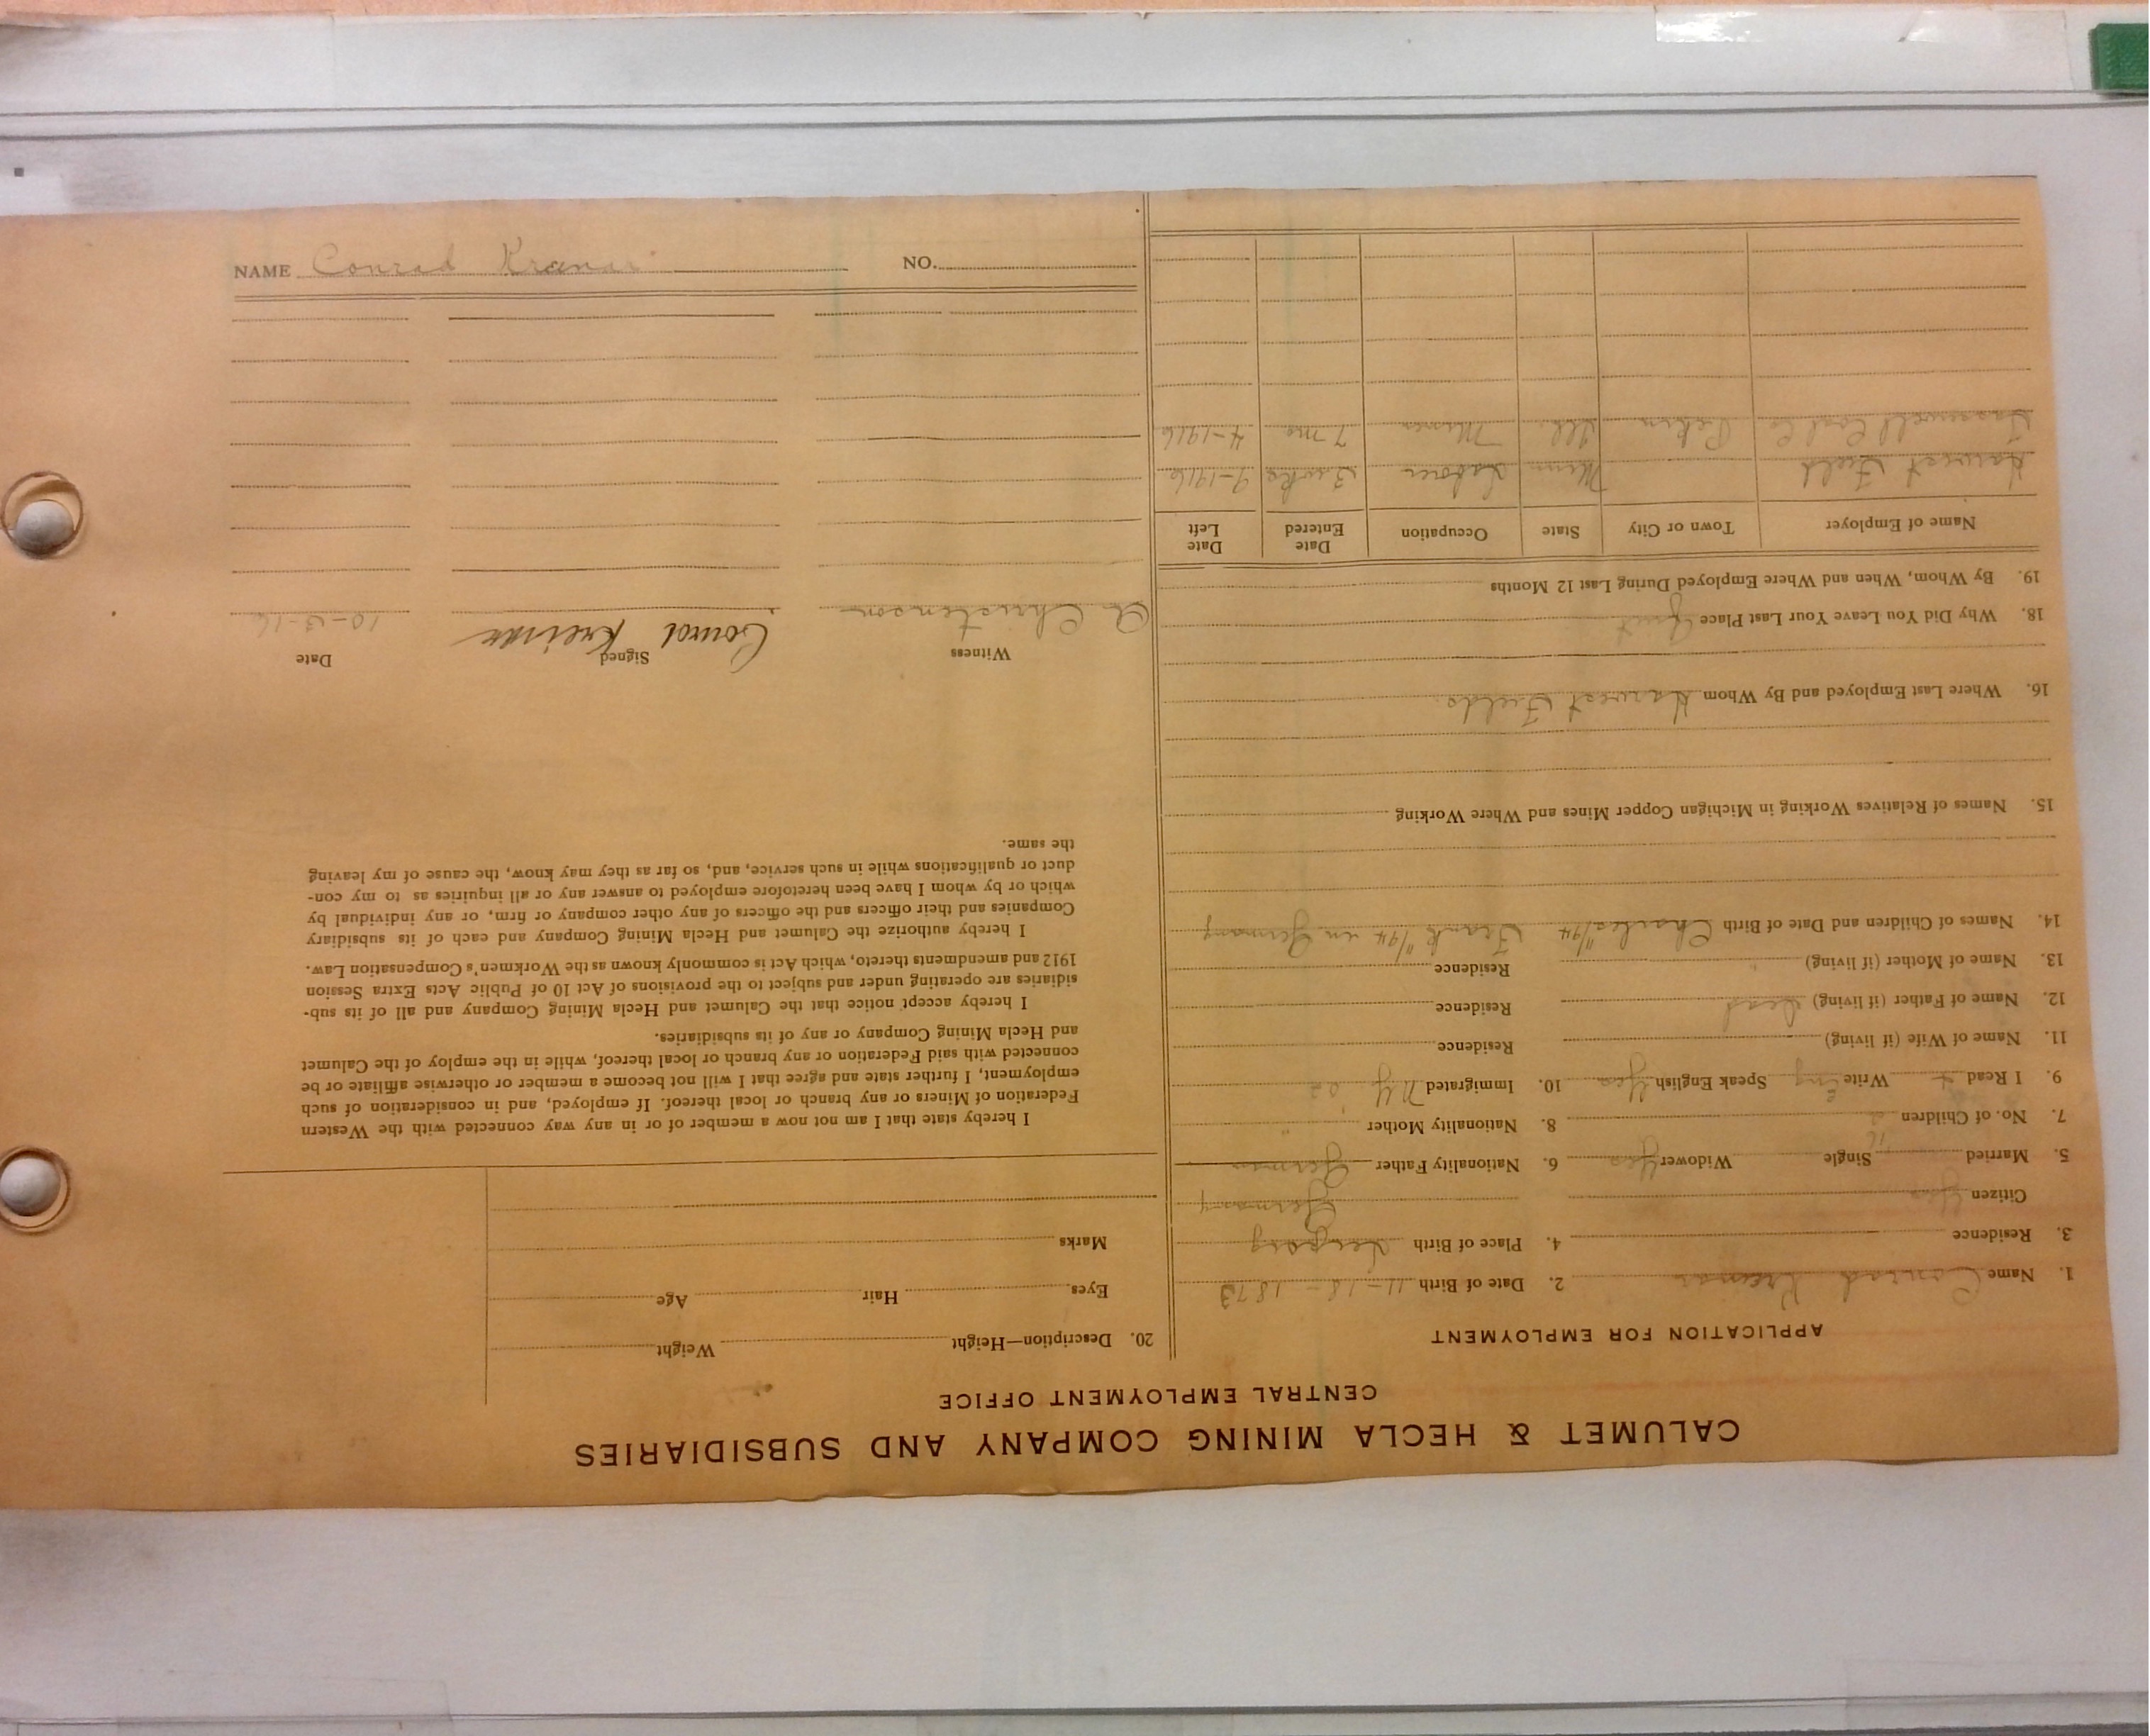 CALUMET & HECLA MINING COMPANY AND SUBSIDIARIES
CENTRAL EMPLOYMENT OFFICE
APPLICATION FOR EMPLOYMENT
1. Name Conrad 2. Date of Birth 11-18-1873
3. Residence 4. Place of Birth Leipzig
Citizen Yes Germany
5. Married Single Widower Yes 6. Nationality Father German
7. No. of Children 2 8. Nationality Mother "
9. I Read Write Eng Speak English Yes 10. Immigrated N.Y.
11. Name of Wife (if living) Residence
12. Name of Father (if living) Dead Residence
13. Name of Mother (if living) Residence
14. Names of Children and Date of Birth Charles "/94 Frank "/94 in Germany
15. Names of Relatives Working in Michigan Copper Mines and Where Working
16. Where Last Employed and By Whom Harvest Fields.
18. Why Did You Leave Your Last Place Quit
19. By Whom, When and Where Employed During Last 12 Months
Name of Employer Town or City State Occupation Date Entered Date Left
Harvest Field Minn Laborer 3 wks 9-1916
Tazewell Coal Co Pekin Ill. Miner 7 mo 4-1916
20. Description—Height Weight
Eyes Hair Age
Marks
I hereby state that I am not now a member of or in any way connected with the Western
Federation of Miners or any branch or local thereof. If employed, and in consideration of such
employment, I further state and agree that I will not become a member or otherwise affiliate or be
connected with said Federation or any branch or local thereof, while in the employ of the Calumet
and Hecla Mining Company or any of its subsidiaries.
I hereby accept notice that the Calumet and Hecla Mining Company and all of its sub-
sidiaries are operating under and subject to the provisions of Act 10 of Public Acts Extra Session
1912 and amendments thereto, which Act is commonly known as the Workmen's Compensation Law.
I hereby authorize the Calumet and Hecla Mining Company and each of its subsidiary
Companies and their officers and the officers of any other company or firm, or any individual by
which or by whom I have been heretofore employed to answer any or all inquiries as to my con-
duct or qualifications while in such service, and, so far as they may know, the cause of my leaving
the same.
Witness Signed Date
A Christenson 10-3-16
NAME Conrad NO.